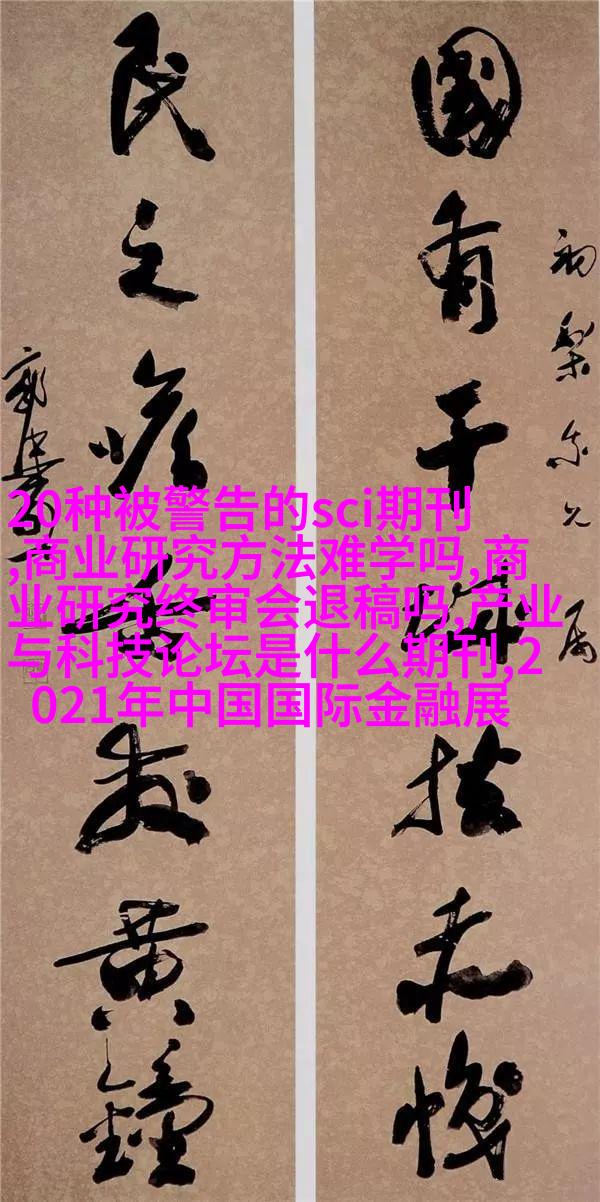 初梨兄属
國有干城扶赤幟
民之喉舌發黄鐘
郭沫若
20种被警告的sci期刊
,商业研究方法难学吗,商
业研究终审会退稿吗,产业
与科技论坛是什么期刊,2
021年中国国际金融展